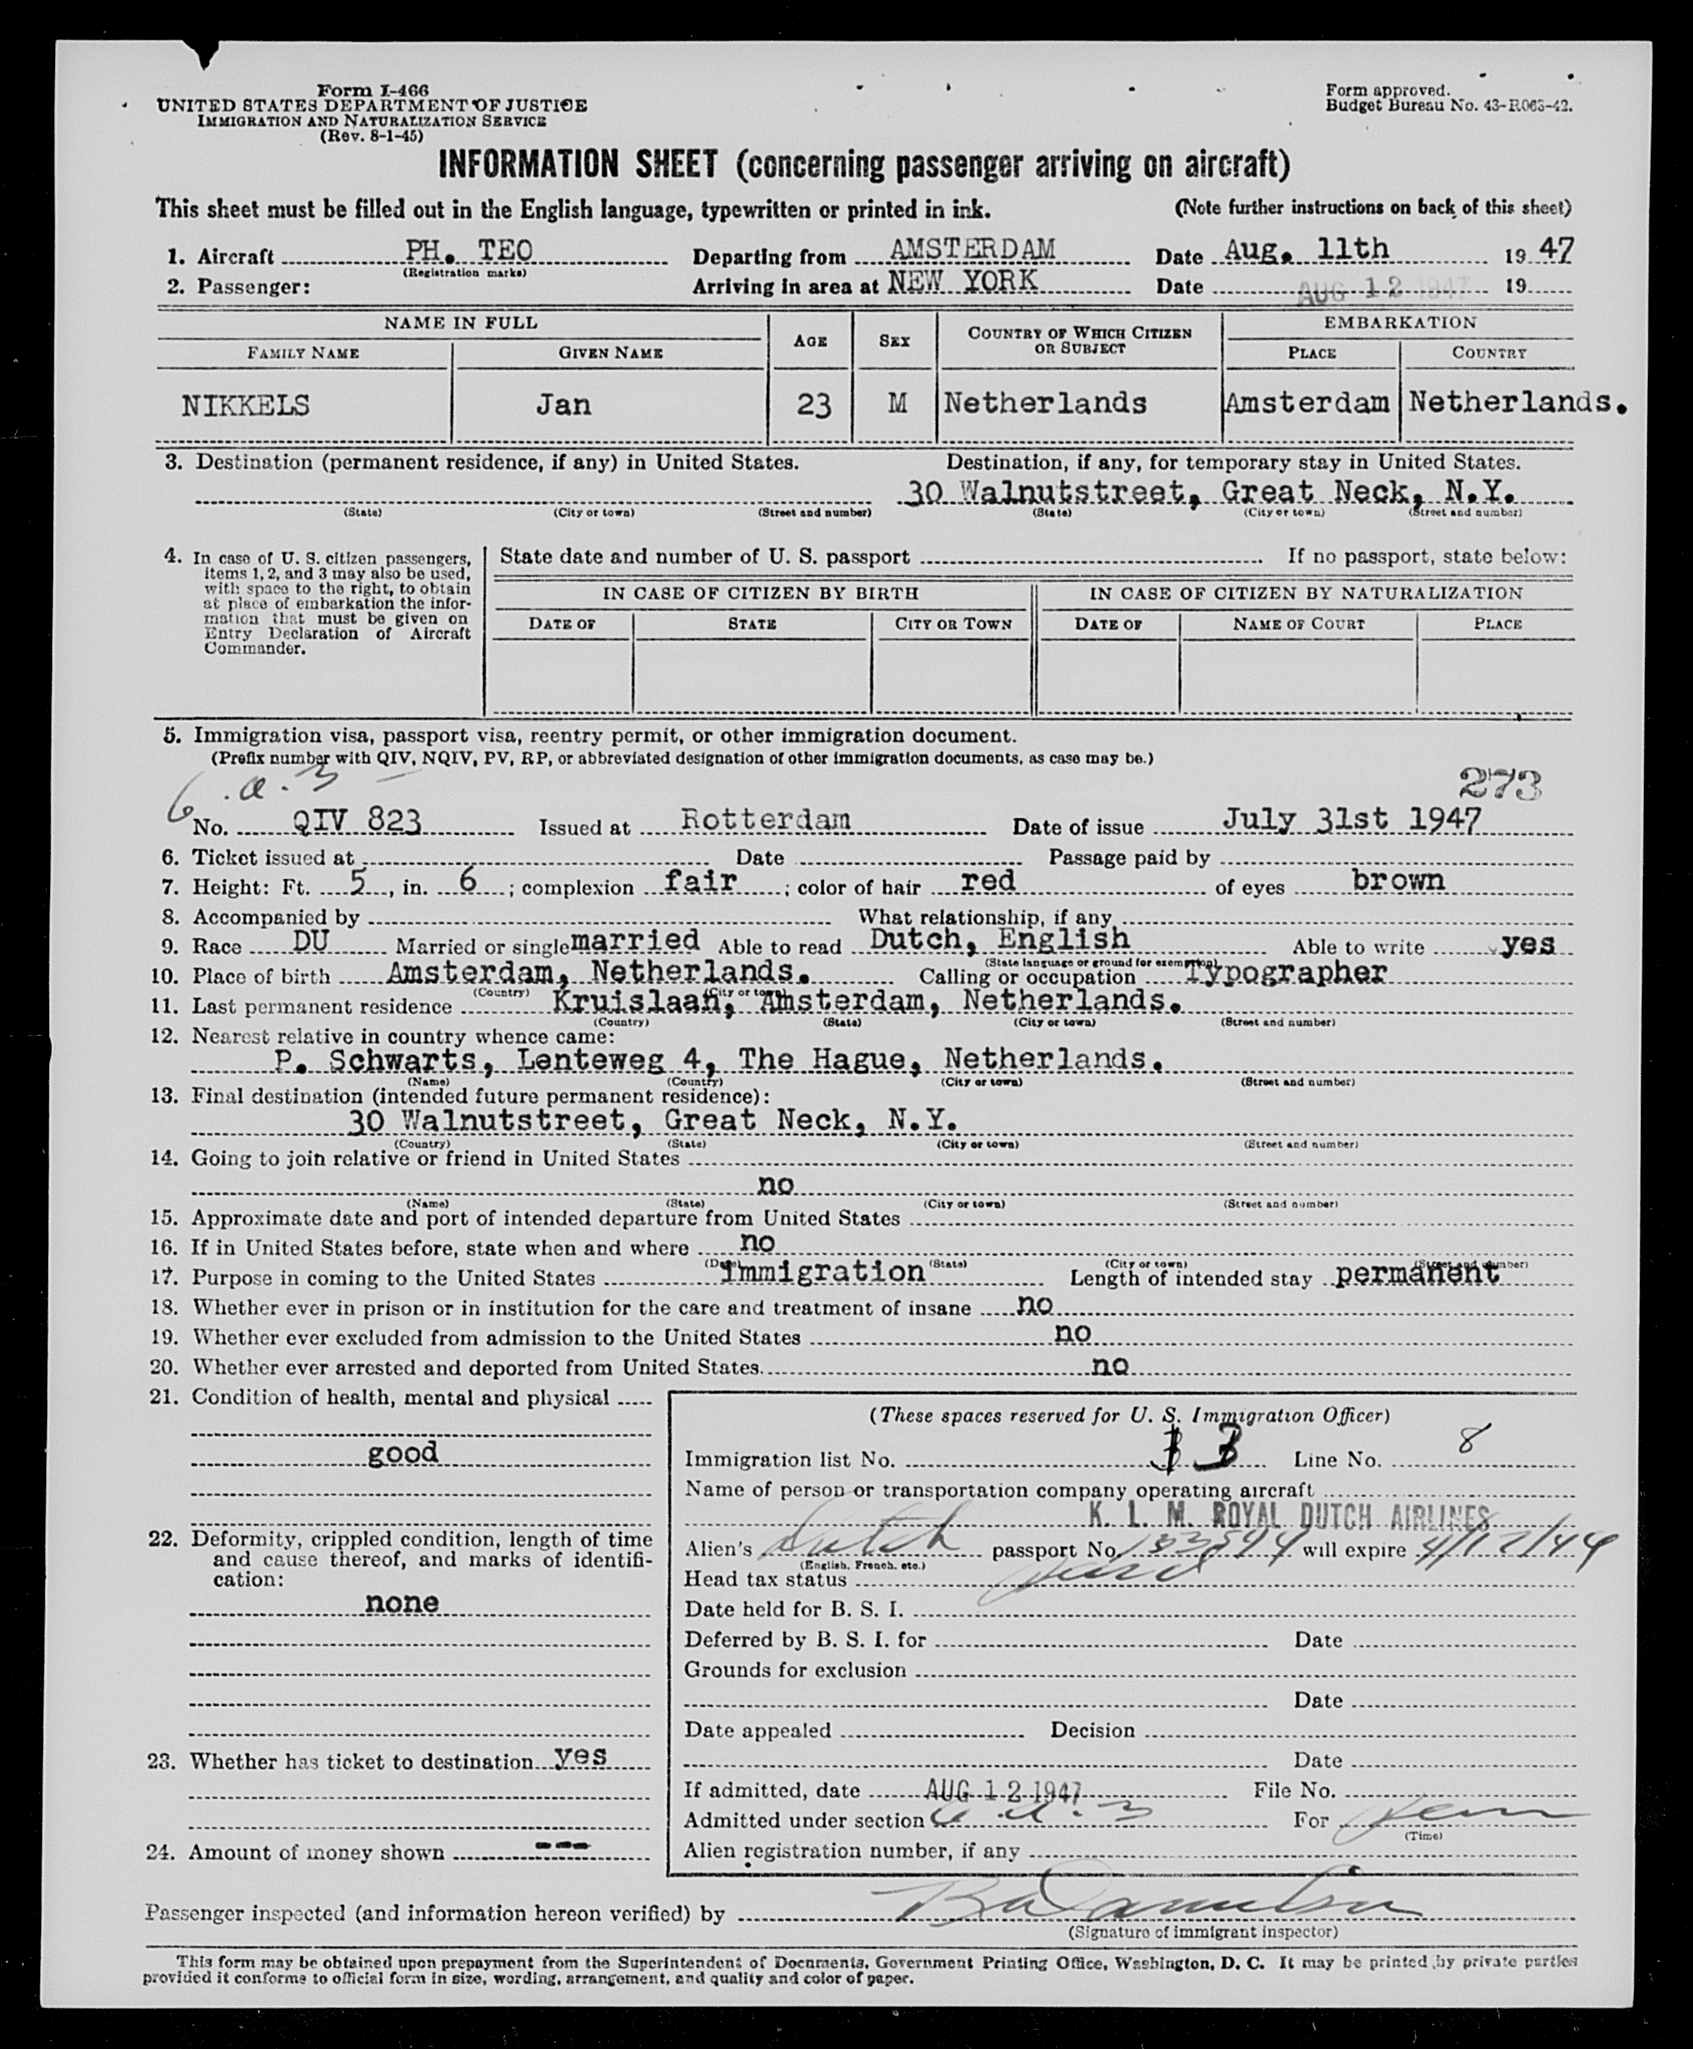 Form I-466
UNITED STATES DEPARTMENT OF JUSTICE
IMMIGRATION AND NATURALIZATION SERVICE
(Rev. 8-1-45)
Form approved.
Budget Bureau No. 43-R063-42.
INFORMATION SHEET (concerning passenger arriving on aircraft)
This sheet must be filled out in the English language, typewritten or printed in ink. (Note further instructions on back of this sheet)
1. Aircraft PH. TEO Departing from AMSTERDAM Date Aug. 11th 1947
(Registration marks)
2. Passenger: Arriving in area at NEW YORK Date AUG 12 1947 19
NAME IN FULL AGE SEX COUNTRY OF WHICH CITIZEN OR SUBJECT EMBARKATION
FAMILY NAME GIVEN NAME PLACE COUNTRY
NIKKELS Jan 23 M Netherlands Amsterdam Netherlands.
3. Destination (permanent residence, if any) in United States. Destination, if any, for temporary stay in United States.
30 Walnutstreet, Great Neck, N.Y.
(State) (City or town) (Street and number) (State) (City or town) (Street and number)
4. In case of U. S. citizen passengers, items 1, 2, and 3 may also be used, with space to the right, to obtain at place of embarkation the information that must be given on Entry Declaration of Aircraft Commander.
State date and number of U. S. passport If no passport, state below:
IN CASE OF CITIZEN BY BIRTH IN CASE OF CITIZEN BY NATURALIZATION
DATE OF STATE CITY OR TOWN DATE OF NAME OF COURT PLACE
5. Immigration visa, passport visa, reentry permit, or other immigration document.
(Prefix number with QIV, NQIV, PV, RP, or abbreviated designation of other immigration documents, as case may be.)
6.a.3 - 273
No. QIV 823 Issued at Rotterdam Date of issue July 31st 1947
6. Ticket issued at Date Passage paid by
7. Height: Ft. 5, in. 6; complexion fair; color of hair red of eyes brown
8. Accompanied by What relationship, if any
9. Race DU Married or single married Able to read Dutch, English Able to write yes
(State language or ground for exemption)
10. Place of birth Amsterdam, Netherlands. Calling or occupation Typographer
(Country) (City or town)
11. Last permanent residence Kruislaan, Amsterdam, Netherlands.
(Country) (State) (City or town) (Street and number)
12. Nearest relative in country whence came:
P. Schwarts, Lenteweg 4, The Hague, Netherlands.
(Name) (Country) (City or town) (Street and number)
13. Final destination (intended future permanent residence):
30 Walnutstreet, Great Neck, N.Y.
(Country) (State) (City or town) (Street and number)
14. Going to join relative or friend in United States
no
(Name) (State) (City or town) (Street and number)
15. Approximate date and port of intended departure from United States
16. If in United States before, state when and where no
(Date) (State) (City or town) (Street and number)
17. Purpose in coming to the United States immigration Length of intended stay permanent
18. Whether ever in prison or in institution for the care and treatment of insane no
19. Whether ever excluded from admission to the United States no
20. Whether ever arrested and deported from United States. no
21. Condition of health, mental and physical
good
22. Deformity, crippled condition, length of time and cause thereof, and marks of identification:
none
23. Whether has ticket to destination yes
24. Amount of money shown ---
(These spaces reserved for U. S. Immigration Officer)
Immigration list No. 3 Line No. 8
Name of person or transportation company operating aircraft
K. L. M. ROYAL DUTCH AIRLINES
Alien's Dutch passport No. will expire
(English, French, etc.)
Head tax status
Date held for B. S. I.
Deferred by B. S. I. for Date
Grounds for exclusion
Date
Date appealed Decision
Date
If admitted, date AUG 12 1947 File No.
Admitted under section 6.a.3 For
(Time)
Alien registration number, if any
Passenger inspected (and information hereon verified) by
(Signature of immigrant inspector)
This form may be obtained upon prepayment from the Superintendent of Documents, Government Printing Office, Washington, D. C. It may be printed by private parties
provided it conforms to official form in size, wording, arrangement, and quality and color of paper.